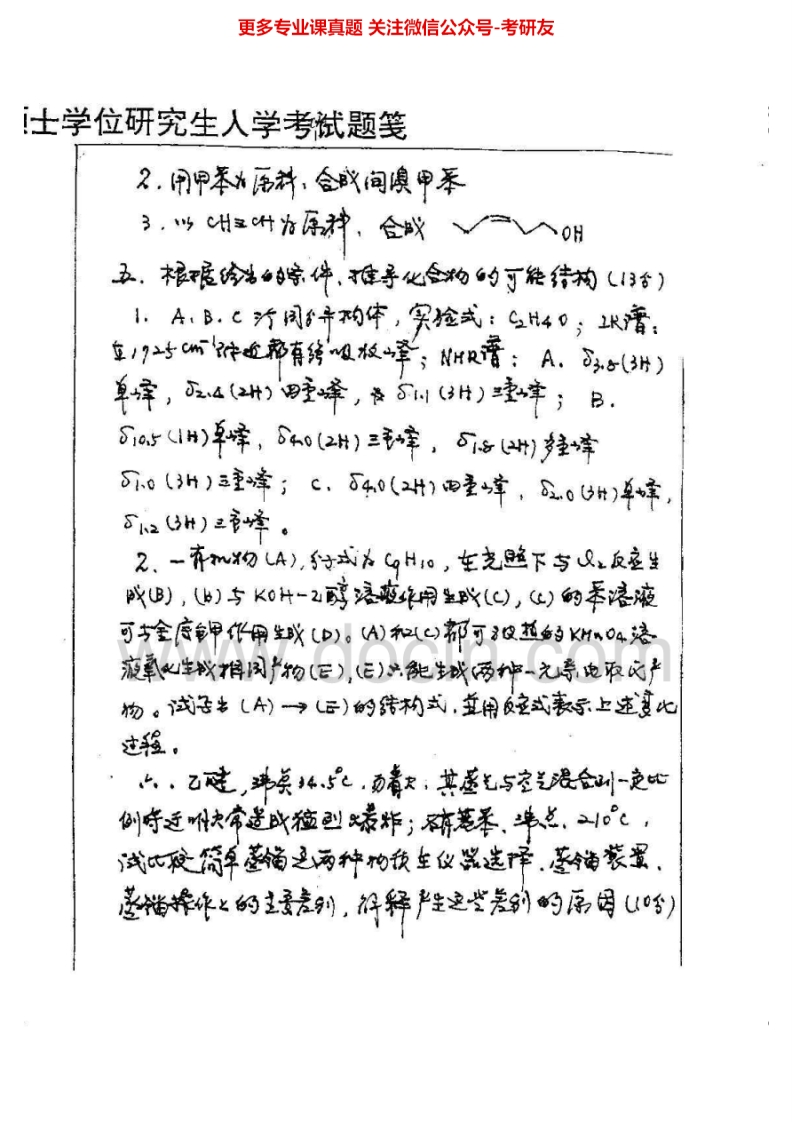 更多专业课真题 关注微信公众号-考研友
士学位研究生入学考试题笺
2. 用甲苯为原料, 合成间溴甲苯
3. 以 CH≡CH 为原料, 合成 OH
五. 根据给出的条件, 推导化合物的可能结构 (13分)
1. A、B、C 三个同分异构体, 实验式: C2H4O; IR谱:
在1725cm-1附近都有强吸收峰; NMR谱: A. δ3.8(3H)
单峰, δ2.4(2H) 四重峰, δ1.1(3H) 三重峰; B.
δ10.5(1H)单峰, δ4.0(2H)三重峰, δ1.8(2H)多重峰
δ1.0(3H)三重峰; C. δ4.0(2H)四重峰, δ2.0(3H)单峰,
δ1.2(3H)三重峰。
2. 一有机物(A), 分子式为C9H10, 在光照下与Cl2反应生
成(B), (B)与KOH-乙醇溶液作用生成(C), (C)的苯溶液
可与金属钾作用生成(D)。(A)和(C)都可被热的KMnO4溶
液氧化生成相同产物(E), (E)只能生成两种一元亲电取代产
物。试写出(A)→(E)的结构式, 并用反应式表示上述变化
过程。
六. 乙醚, 沸点34.5℃, 易着火, 其蒸气与空气混合到一定比
例时遇明火常造成猛烈爆炸; 硝基苯, 沸点, 210℃,
试比较简单蒸馏这两种物质在仪器选择、蒸馏装置、
蒸馏操作上的主要差别, 解释产生这些差别的原因(10分)
www.docin.com